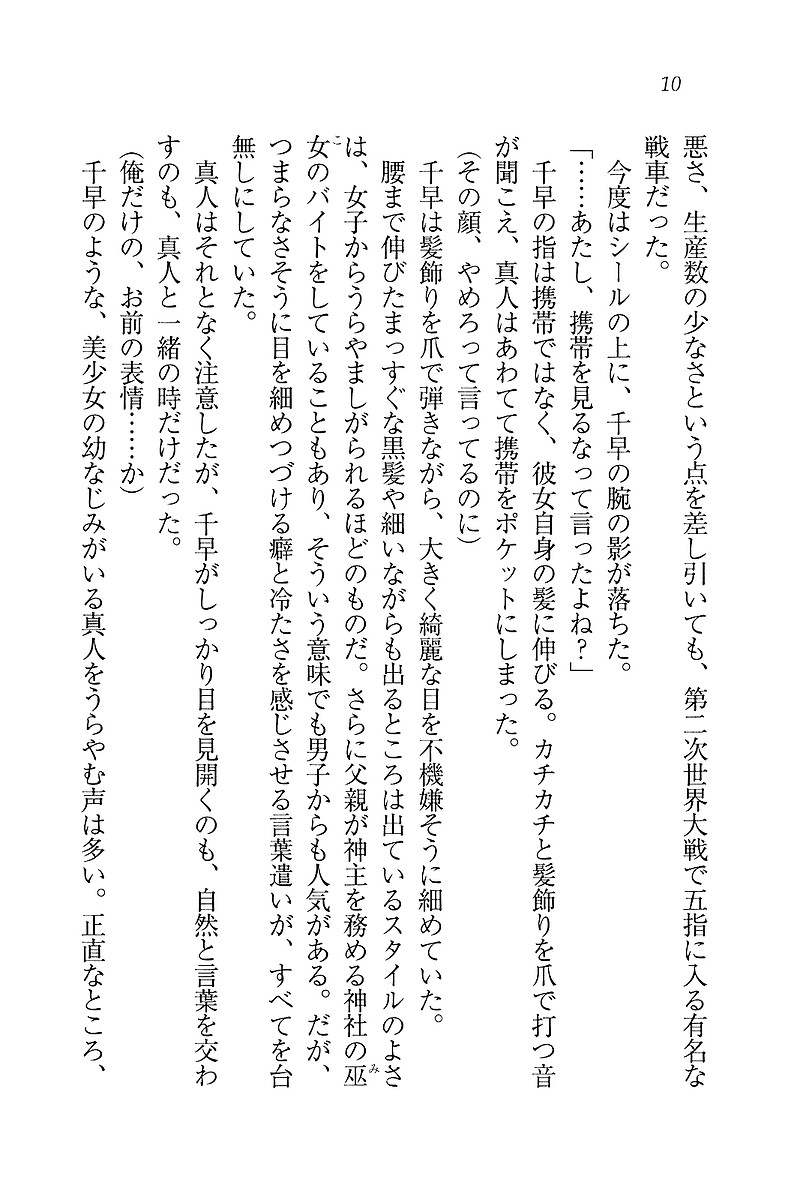 10
悪さ、生産数の少なさという点を差し引いても、第二次世界大戦で五指に入る有名な
戦車だった。
今度はシールの上に、千早の腕の影が落ちた。
「……あたし、携帯を見るなって言ったよね？」
千早の指は携帯ではなく、彼女自身の髪に伸びる。カチカチと髪飾りを爪で打つ音
が聞こえ、真人はあわてて携帯をポケットにしまった。
（その顔、やめろって言ってるのに）
千早は髪飾りを爪で弾きながら、大きく綺麗な目を不機嫌そうに細めていた。
腰まで伸びたまっすぐな黒髪や細いながらも出るところは出ているスタイルのよさ
は、女子からうらやましがられるほどのものだ。さらに父親が神主を務める神社の巫
女のバイトをしていることもあり、そういう意味でも男子からも人気がある。だが、
つまらなさそうに目を細めつづける癖と冷たさを感じさせる言葉遣いが、すべてを台
無しにしていた。
真人はそれとなく注意したが、千早がしっかり目を見開くのも、自然と言葉を交わ
すのも、真人と一緒の時だけだった。
（俺だけの、お前の表情……か）
千早のような、美少女の幼なじみがいる真人をうらやむ声は多い。正直なところ、